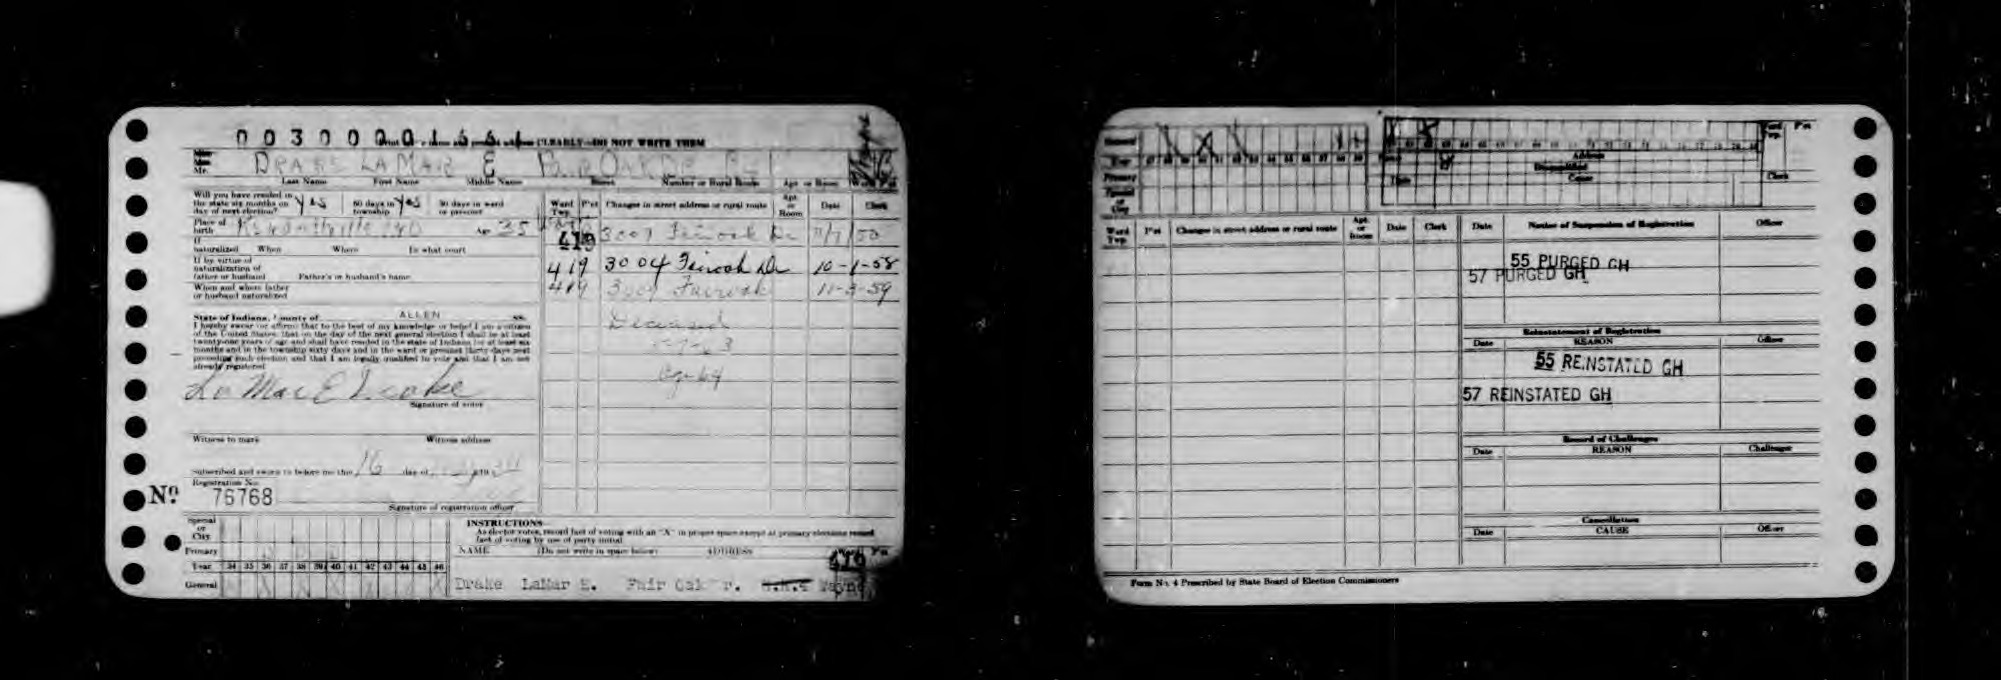 0030000
name and present address CLEARLY—DO NOT WRITE THEM
Mr.
DRAKE LA MAR E FAIR OAK DR
Last Name First Name Middle Name Street Number or Rural Route Apt. or Room Ward P'ct
Will you have resided in
the state six months on
day of next election? yes
60 days in
township yes
30 days in ward
or precinct
Place of
birth Kendallville IND Age 35
If
naturalized When Where In what court
If by virtue of
naturalization of
father or husband Father's or husband's name
When and where father
or husband naturalized
State of Indiana, County of ALLEN ss.
I hereby swear (or affirm) that to the best of my knowledge or belief I am a citizen
of the United States; that on the day of the next general election I shall be at least
twenty-one years of age and shall have resided in the state of Indiana for at least six
months and in the township sixty days and in the ward or precinct thirty days next
preceding such election and that I am legally qualified to vote and that I am not
already registered
La Mar E Drake
Signature of voter
Witness to mark Witness address
Subscribed and sworn to before me this 16 day of
Registration No.
No. 76768
Signature of registration officer
Ward
Twp. P'ct Changes in street address or rural route Apt.
or
Room Date Clerk
419 3009 Fairoak Dr 11/7/50
419 3004 Fairoak Dr 10-1-58
419 3009 Fairoak 11-3-59
Deceased
Special
or
City
Primary
Year 34 35 36 37 38 39 40 41 42 43 44 45 46
General
INSTRUCTIONS—
As elector votes, record fact of voting with an "X" in proper space except at primary elections record
fact of voting by use of party initial
NAME (Do not write in space below) ADDRESS Ward P'ct
419
Drake LaMar E. Fair Oak r. R.R.4 Wayne
General
Year
Primary
Special
or
City
Date
Address
Disqualified
Cause
Ward
Twp. P'ct
Clerk
Ward
Twp. P'ct Changes in street address or rural route Apt.
or
Room Date Clerk
Date Notice of Suspension of Registration Officer
55 PURGED GH
57 PURGED GH
Reinstatement of Registration
Date REASON Officer
55 REINSTATED GH
57 REINSTATED GH
Record of Challenges
Date REASON Challenger
Cancellation
Date CAUSE Officer
Form No. 4 Prescribed by State Board of Election Commissioners